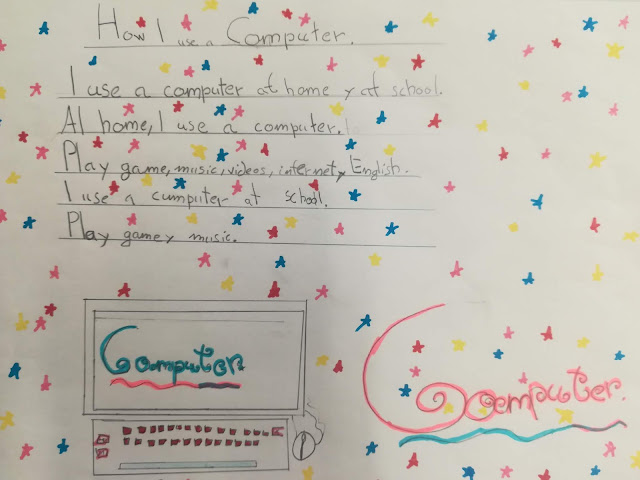 How I use a Computer.
I use a computer at home y at school.
At home, I use a computer.
Play game, music, videos, internet y English.
I use a cumputer at school.
Play game y music.
Computer
Computer.